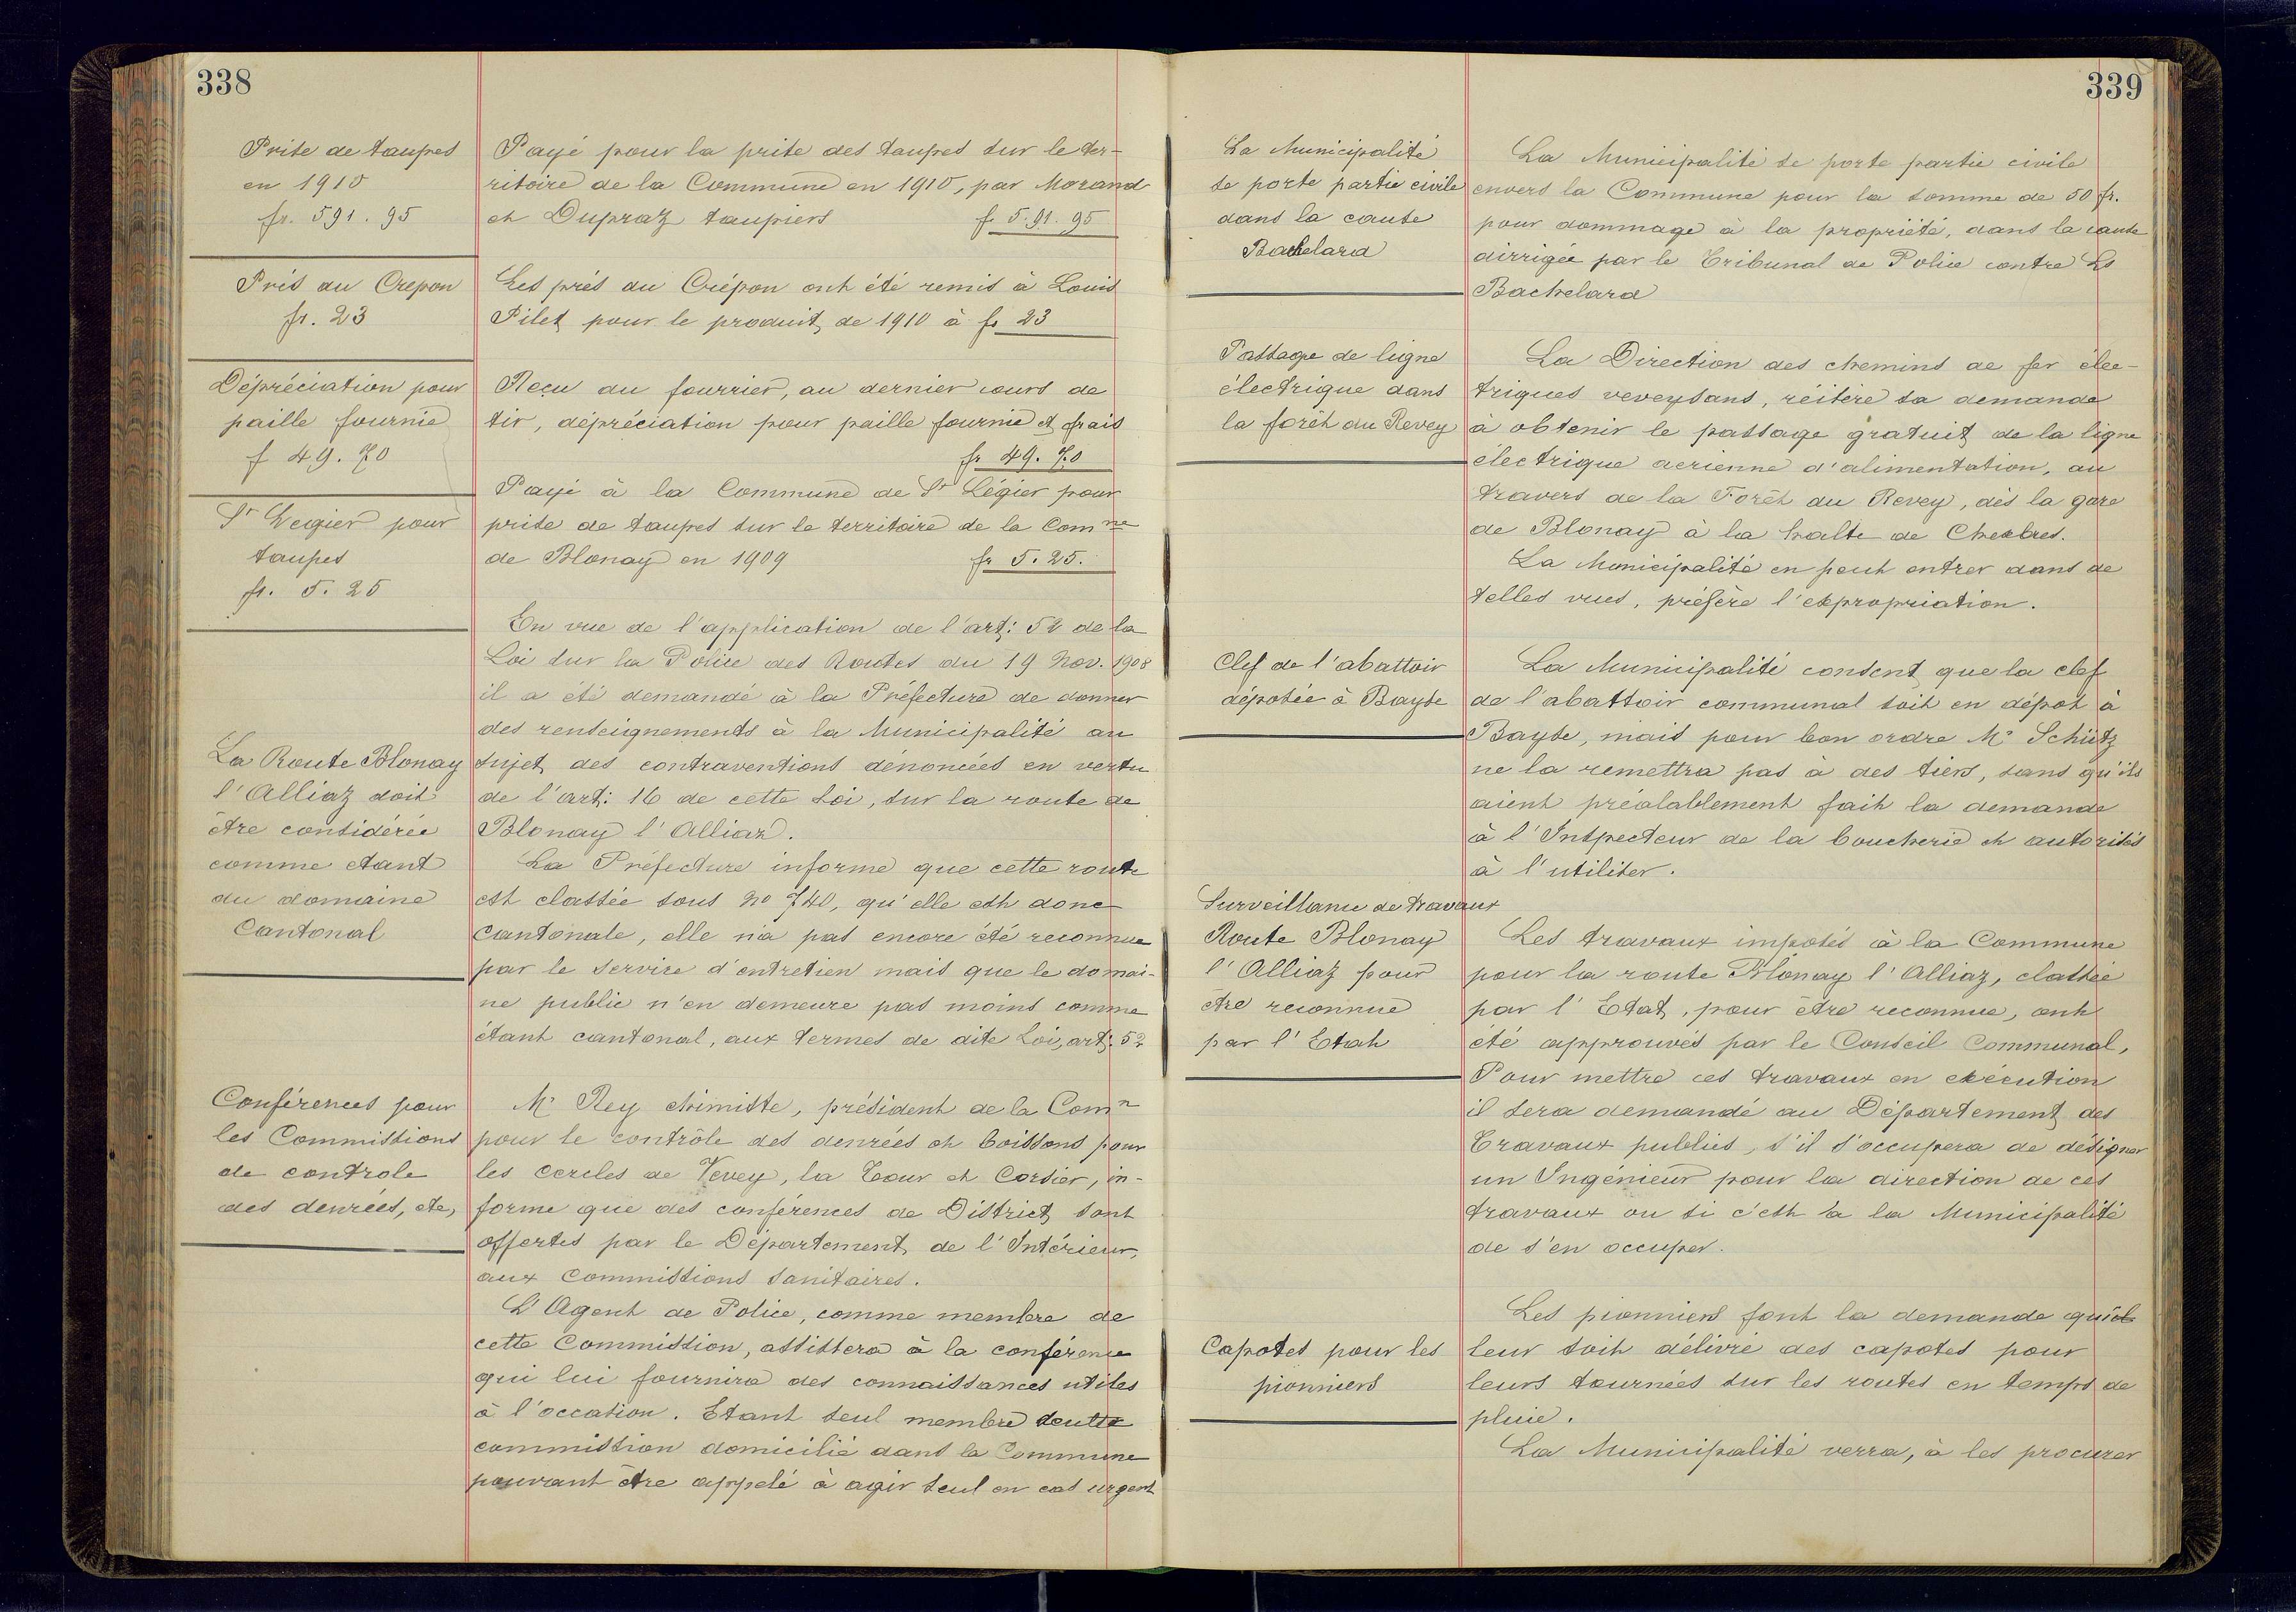 338
Prise de taupes
en 1910
fr. 591.95
Payé pour la prise des taupes sur le ter-
ritoire de la Commune en 1910, par Morand
et Dupraz taupiers f. 591.95
Prés au Crepon
fr. 23
Les prés du Crépon ont été remis à Louis
Pilet pour le produit de 1910 à fr 23
Dépréciation pour
paille fournie
f 49.70
Reçu du fourrier, au dernier cours de
tir, dépréciation pour paille fournie et frais
fr 49.70
St Legier pour
taupes
fr. 5.25
Payé à la Commune de St Légier pour
prise de taupes sur le territoire de la Comne
de Blonay en 1909 fr 5.25.
La Route Blonay
l'Alliaz doit
être considérée
comme etant
du domaine
Cantonal
En vue de l'application de l'art: 52 de la
Loi sur la Police des Routes du 19 Nov. 1908
il a été demandé à la Préfecture de donner
des renseignements à la Municipalité au
sujet des contraventions dénoncées en vertu
de l'art: 16 de cette Loi, sur la route de
Blonay l'Alliaz.
La Préfecture informe que cette route
est classée sous No 740, qu'elle est donc
Cantonale, elle n'a pas encore été reconnue
par le service d'entretien mais que le domai-
ne public n'en demeure pas moins comme
étant cantonal, aux termes de dite Loi, art: 52
Conférences pour
les Commissions
de controle
des denrées, etc,
Mr Rey chimiste, président de la Comn
pour le contrôle des denrées et boissons pour
les cercles de Vevey, la Tour et Corsier, in-
forme que des conférences de District sont
offertes par le Département de l'Intérieur,
aux Commissions sanitaires.
L'Agent de Police, comme membre de
cette Commission, assistera à la conférence
qui lui fournira des connaissances utiles
à l'occasion. Etant seul membre de
commission domicilié dans la Commune
pouvant être appelé à agir seul en cas urgent
339
La Municipalité
se porte partie civile
dans la cause
Bachelard
La Municipalité se porte partie civile
envers la Commune pour la somme de 50 fr.
pour dommage à la propriété, dans la cause
dirrigée par le Tribunal de Police contre Ls
Bachelard
Passage de ligne
électrique dans
la forêt du Revey
La Direction des chemins de fer élec-
triques veveysans, réitère sa demande
à obtenir le passage gratuit de la ligne
électrique aerienne d'alimentation, au
travers de la Forêt du Revey, dès la gare
de Blonay à la halte de Chexbres.
La Municipalité en peut entrer dans de
telles vues, préfère l'expropriation.
Clef de l'abattoir
déposée à Bayse
La Municipalité consent que la clef
de l'abattoir communal soit en dépot à
Bayse, mais pour bon ordre Mr Schütz
ne la remettra pas à des tiers, sans qu'ils
aient préalablement fait la demande
à l'Inspecteur de la boucherie et autorisés
à l'utiliser.
Surveillance de travaux
Route Blonay
l'Alliaz pour
être reconnue
par l'Etat
Les travaux imposés à la Commune
pour la route Blonay l'Alliaz, classée
par l'Etat, pour être reconnue, ont
été approuvés par le Conseil Communal,
Pour mettre ces travaux en exécution
il sera demandé au Département des
Travaux publics, s'il s'occupera de désigner
un Ingénieur pour la direction de ces
travaux ou si c'est à la Municipalité
de s'en occuper.
Capotes pour les
pionniers
Les pionniers font la demande qu'il
leur soit délivré des capotes pour
leurs tournées sur les routes en temps de
pluie.
La Municipalité verra, à les procurer